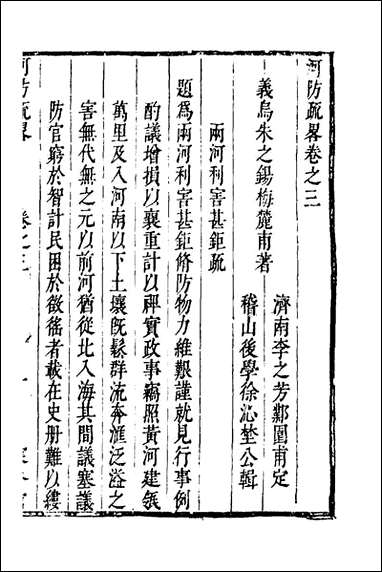 河防疏畧卷之三
濟南李之芳鄴園甫定
義烏朱之錫梅麓甫著
稽山後學徐沁埜公輯
兩河利害甚鉅疏
題為兩河利害甚鉅脩防物力維艱謹就見行事例
酌議增損以襄重計以禆實政事竊照黃河建瓴
萬里及入河南以下土壤旣鬆群流奔滙泛溢之
害無代無之元以前河猶從北入海其間議塞議
防官窮於智計民困於徵徭者載在史册難以縷
河防疏畧 卷之三 一